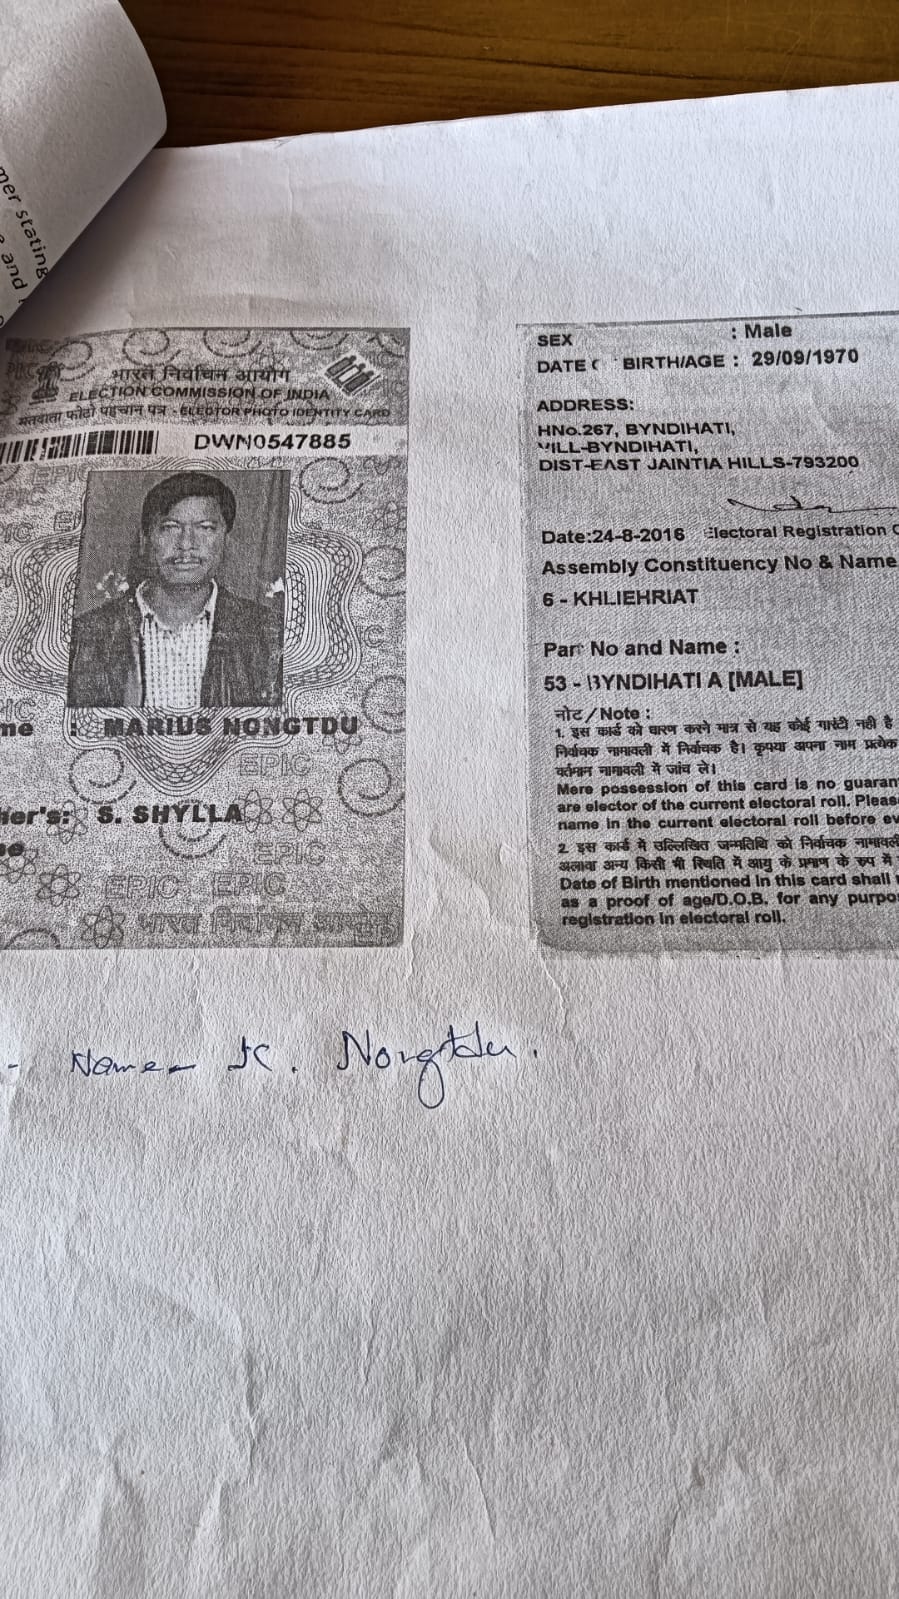 mer stating
and
भारत निर्वाचन आयोग
ELECTION COMMISSION OF INDIA
मतदाता फोटो पहचान पत्र - ELECTOR PHOTO IDENTITY CARD
DWN0547885
me : MARIUS NONGTDU
her's: S. SHYLLA
EPIC
EPIC
EPIC EPIC
भारत निर्वाचन आयोग
SEX : Male
DATE BIRTH/AGE : 29/09/1970
ADDRESS:
HNo.267, BYNDIHATI,
VILL-BYNDIHATI,
DIST-EAST JAINTIA HILLS-793200
Date:24-8-2016 Electoral Registration O
Assembly Constituency No & Name
6 - KHLIEHRIAT
Part No and Name :
53 - BYNDIHATI A [MALE]
नोट / Note :
1. इस कार्ड को धारण करने मात्र से यह कोई गारंटी नही है
निर्वाचक नामावली में निर्वाचक है। कृपया अपना नाम प्रत्येक
वर्तमान नामावली में जांच ले।
Mere possession of this card is no guaran
are elector of the current electoral roll. Pleas
name in the current electoral roll before ev
2. इस कार्ड में उल्लिखित जन्मतिथि को निर्वाचक नामावली
अलावा अन्य किसी भी स्थिति में आयु के प्रमाण के रुप में
Date of Birth mentioned in this card shall
as a proof of age/D.O.B. for any purpo
registration in electoral roll.
- Name - K. Nongtdu.